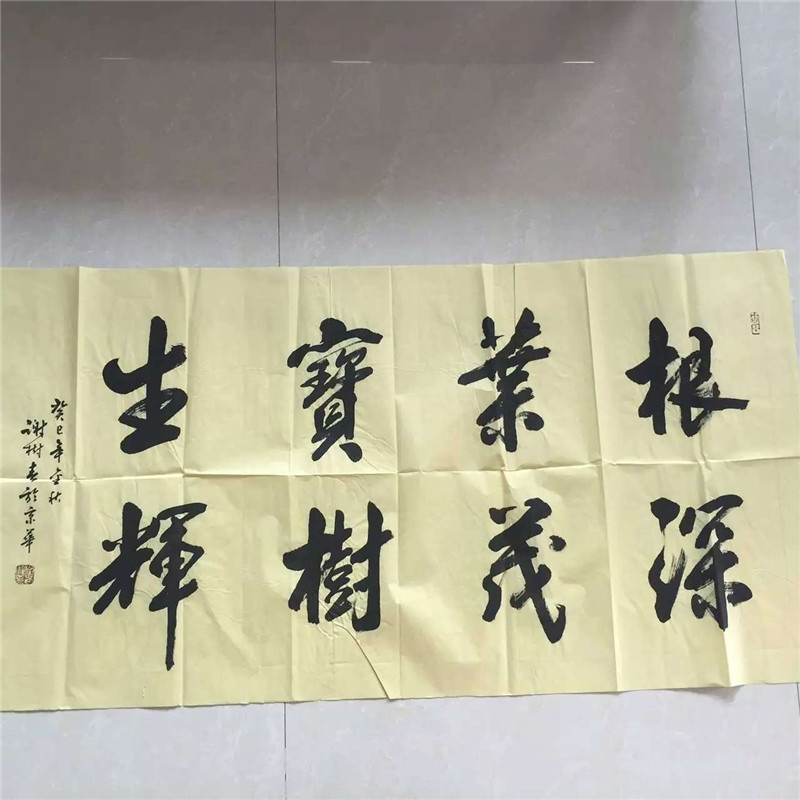 根深
葉茂
寶樹
生輝
癸巳年金秋
謝樹春於京華